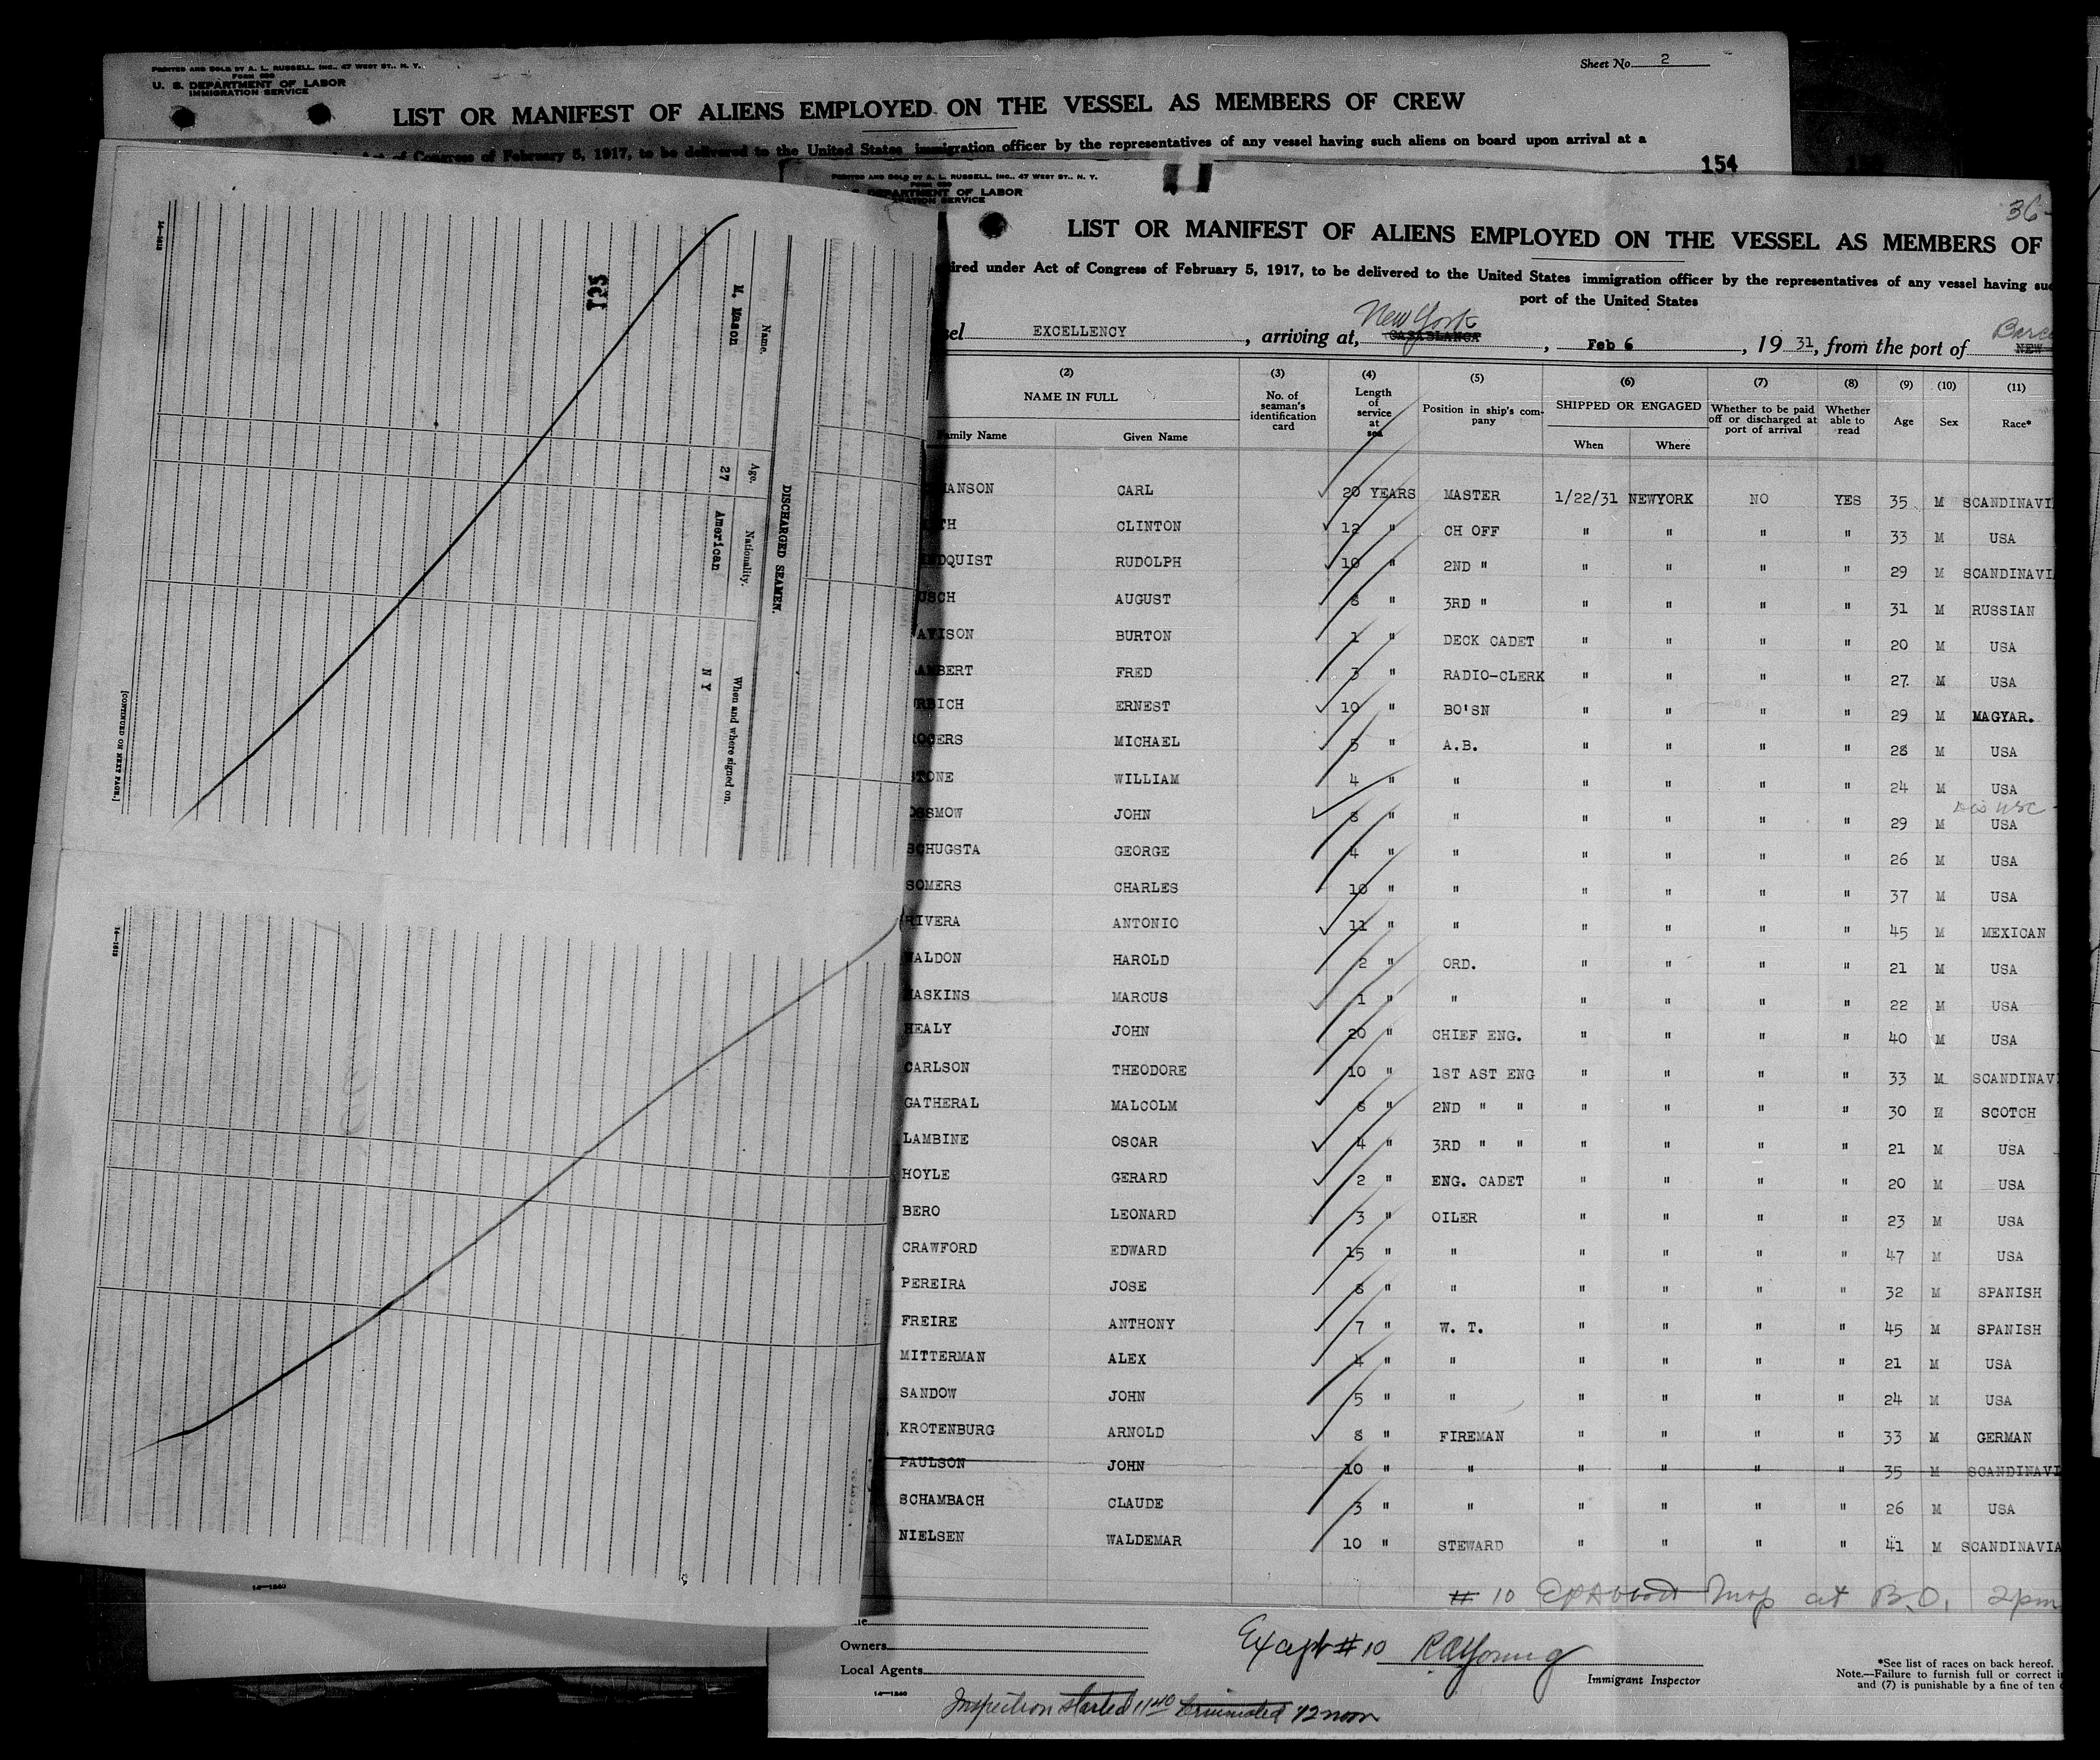 PRINTED AND SOLD BY A. L. RUSSELL, INC., 47 WEST ST., N. Y.
FORM 680
U. S. DEPARTMENT OF LABOR
IMMIGRATION SERVICE
Sheet No. 2
LIST OR MANIFEST OF ALIENS EMPLOYED ON THE VESSEL AS MEMBERS OF CREW
Act of Congress of February 5, 1917, to be delivered to the United States immigration officer by the representatives of any vessel having such aliens on board upon arrival at a
154
14—1613
125
DISCHARGED SEAMEN.
Name. Age. Nationality. When and where signed on.
M. Mason 27 American N Y
[CONTINUED ON NEXT PAGE.]
14—1613
14—1240
PRINTED AND SOLD BY A. L. RUSSELL, INC., 47 WEST ST., N. Y.
FORM 680
DEPARTMENT OF LABOR
SERVICE
36-
LIST OR MANIFEST OF ALIENS EMPLOYED ON THE VESSEL AS MEMBERS OF
under Act of Congress of February 5, 1917, to be delivered to the United States immigration officer by the representatives of any vessel having
port of the United States
EXCELLENCY, arriving at, New York CASABLANCA, Feb 6, 19 31, from the port of NEW
(2) (3) (4) (5) (6) (7) (8) (9) (10) (11)
NAME IN FULL No. of seaman's identification card Length of service at sea Position in ship's company SHIPPED OR ENGAGED Whether to be paid off or discharged at port of arrival Whether able to read Age Sex Race*
Family Name Given Name When Where
HANSON CARL 20 YEARS MASTER 1/22/31 NEWYORK NO YES 35 M SCANDINAVI
TH CLINTON 12 " CH OFF " " " " 33 M USA
DQUIST RUDOLPH 10 " 2ND " " " " " 29 M SCANDINAVI
USCH AUGUST 8 " 3RD " " " " " 31 M RUSSIAN
AVISON BURTON 1 " DECK CADET " " " " 20 M USA
AMBERT FRED 3 " RADIO-CLERK " " " " 27 M USA
RBICH ERNEST 10 " BO'SN " " " " 29 M MAGYAR.
ROGERS MICHAEL 5 " A.B. " " " " 28 M USA
STONE WILLIAM 4 " " " " " " 24 M USA
OSSMOW JOHN 8 " " " " " " 29 M USA
SCHUGSTA GEORGE 4 " " " " " " 26 M USA
SOMERS CHARLES 10 " " " " " " 37 M USA
RIVERA ANTONIO 11 " " " " " " 45 M MEXICAN
WALDON HAROLD 2 " ORD. " " " " 21 M USA
HASKINS MARCUS 1 " " " " " " 22 M USA
HEALY JOHN 20 " CHIEF ENG. " " " " 40 M USA
CARLSON THEODORE 10 " 1ST AST ENG " " " " 33 M SCANDINAV
GATHERAL MALCOLM 8 " 2ND " " " " " " 30 M SCOTCH
LAMBINE OSCAR 4 " 3RD " " " " " " 21 M USA
HOYLE GERARD 2 " ENG. CADET " " " " 20 M USA
BERO LEONARD 3 " OILER " " " " 23 M USA
CRAWFORD EDWARD 15 " " " " " " 47 M USA
PEREIRA JOSE 8 " " " " " " 32 M SPANISH
FREIRE ANTHONY 7 " W. T. " " " " 45 M SPANISH
MITTERMAN ALEX 4 " " " " " " 21 M USA
SANDOW JOHN 5 " " " " " " 24 M USA
KROTENBURG ARNOLD 8 " FIREMAN " " " " 33 M GERMAN
PAULSON JOHN 10 " " " " " " 35 M SCANDINAVI
SCHAMBACH CLAUDE 3 " " " " " " 26 M USA
NIELSEN WALDEMAR 10 " STEWARD " " " " 41 M SCANDINAVIA
# 10 at B.O. 2pm
Owners
Local Agents
14—1240
Except #10 R A Young
Immigrant Inspector
*See list of races on back hereof.
Note.—Failure to furnish full or correct
and (7) is punishable by a fine of ten
Inspection started 1140 terminated 12 noon